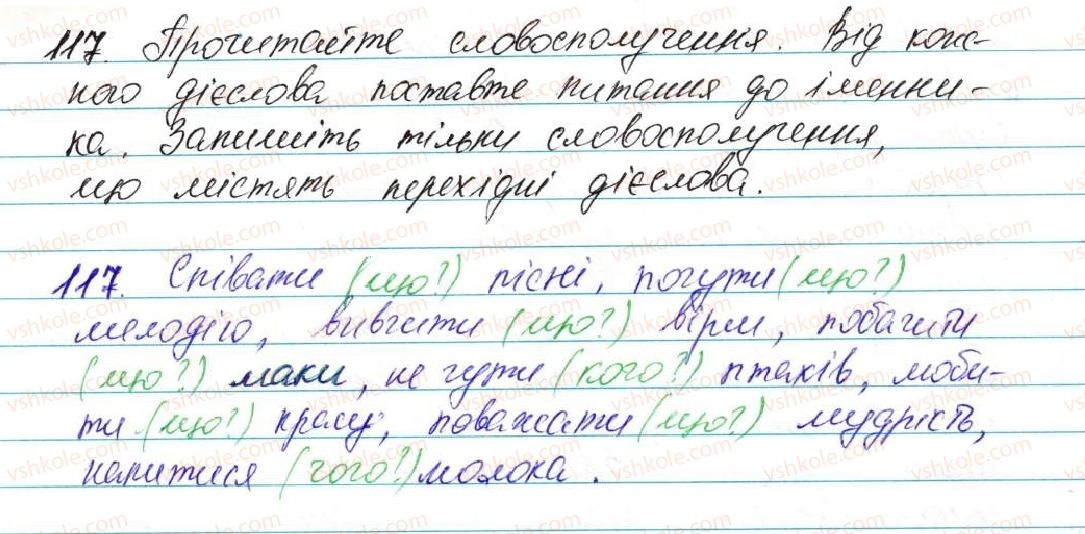 117. Прочитайте словосполучення. Від кож-
ного дієслова поставте питання до іменни-
ка. Запишіть тільки словосполучення,
що містять перехідні дієслова.
117. Співати (що?) пісні, почути (що?)
мелодію, вивчити (що?) вірш, побачити
(що?) маки, не чути (кого?) птахів, люби-
ти (що?) красу, поважати (що?) мудрість,
напитися (чого?) молока.